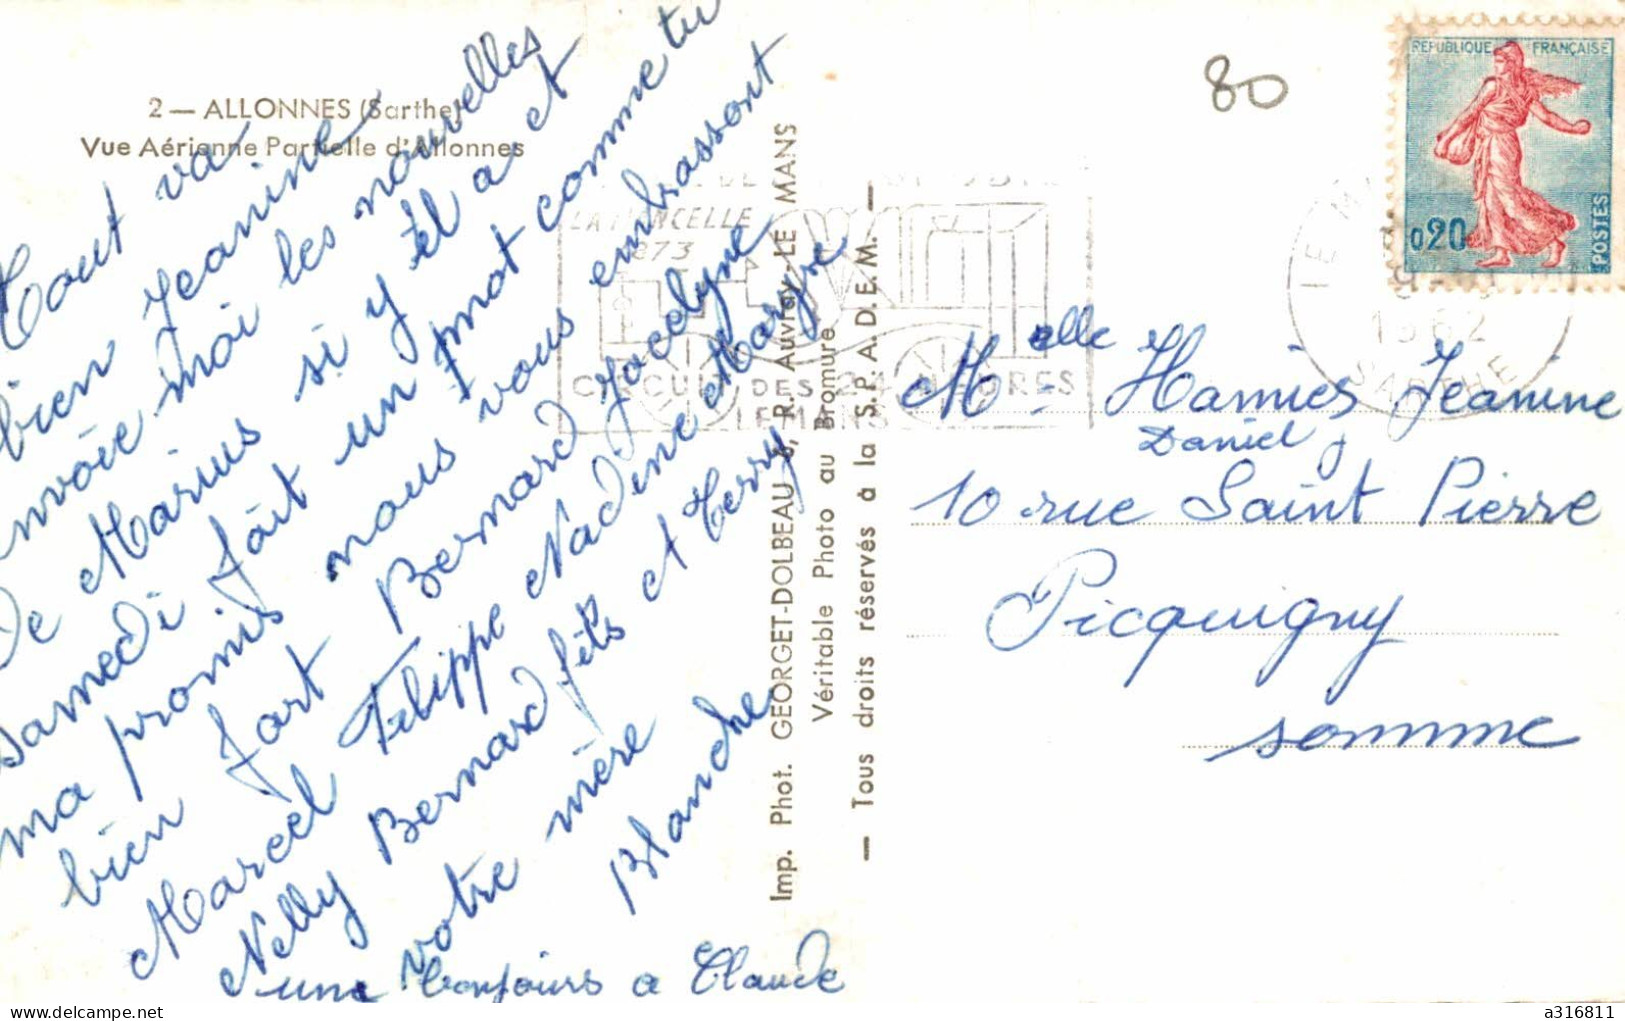 2 — ALLONNES (Sarthe)
Vue Aérienne Partielle d'Allonnes
tout va
bien Jeanine
envoie moi les nouvelles
De Marius si y èl a et
Samedi fait un mot comme tu
ma promis nous vous embrassont
bien fort Bernard Jacelyne
Marcel Filippe Nadine Margre
Nelly Bernard fils et Terry
votre mère
Blanche
une bonjours a Claude
Imp. Phot. GEORGET-DOLBEAU R. Auvray LE MANS
Véritable Photo au Bromure
— Tous droits réservés à la S.P.A.D.E.M. —
80
REPUBLIQUE FRANÇAISE
0,20
POSTES
LA MANCELLE
1873
CIRCUIT DES 24 HEURES
LE MANS
LE M
1962
SARTHE
Melle Hamies Jeanine
Daniel
10 rue Saint Pierre
Picquigny
somme
a316811